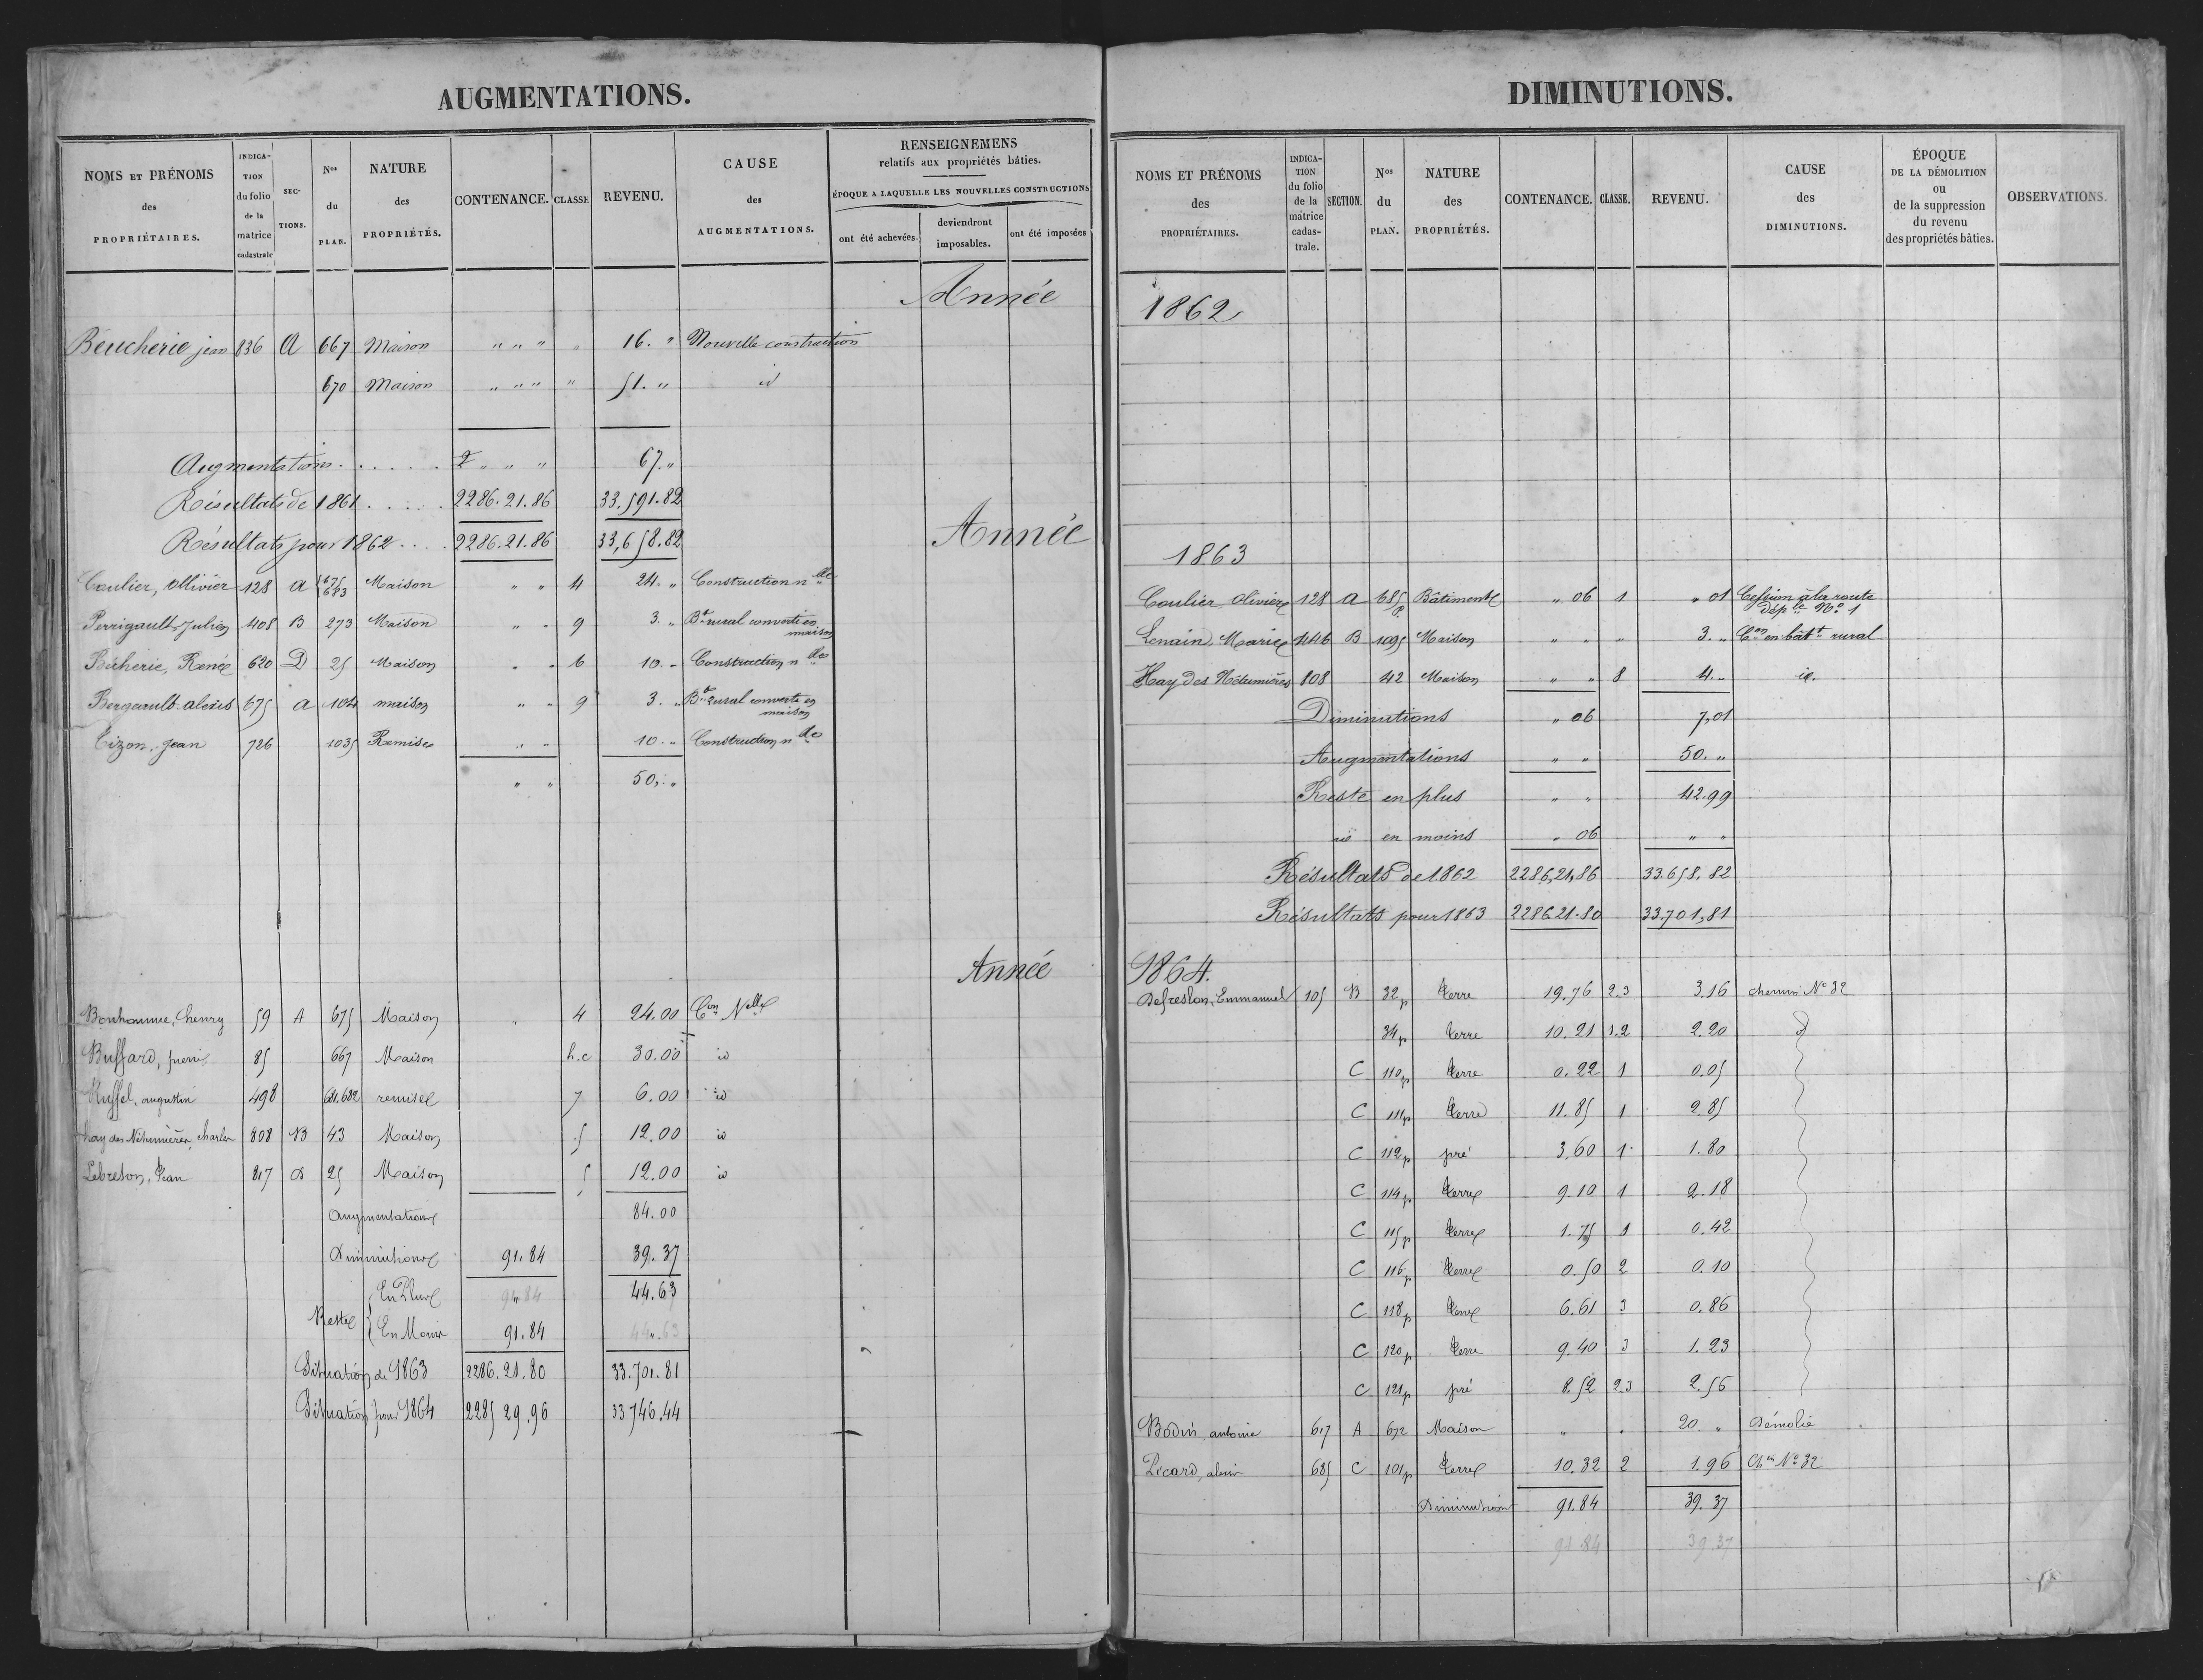 AUGMENTATIONS.
NOMS ET PRÉNOMS des PROPRIÉTAIRES. INDICATION du folio de la matrice cadastrale SECTIONS. Nos du PLAN. NATURE des PROPRIÉTÉS. CONTENANCE. CLASSE REVENU. CAUSE des AUGMENTATIONS. RENSEIGNEMENS relatifs aux propriétés bâties. ÉPOQUE A LAQUELLE LES NOUVELLES CONSTRUCTIONS ont été achevées. deviendront imposables. ont été imposées
Année
Beucherie jean 836 A 667 Maison " " " " 16. " Nouvelle construction
670 Maison " " " " 51. " id
Augmentations . . . . . . " " " 67. "
Résultats de 1861 . . . . . 2286.21.86 33.591.82
Résultats pour 1862 . . . . 2286.21.86 33,658.82
Année
Coulier, Ollivier 128 A 675 683 Maison " " 4 24. " Construction nlle
Perrigault, Julien 408 B 273 Maison " " 9 3. " Bt rural converti en maison
Bécherie, René 620 D 25 Maison " " 6 10. " Construction nlle
Bergault alexis 675 a 104 maison " " 9 3. " Bt rural converti en maison
Tizon, Jean 726 1035 Remise " " 10. " Construction nlle
" " 50, "
Année
Bonhomme, henry 59 A 675 Maison " 4 24.00 Con Nelle
Buffard, pierre 85 667 Maison h.c 30.00 id
Ruffel, augustin 498 681.682 remise 7 6.00 id
hay des Nétumières, charles 808 B 43 Maison 5 12.00 id
Lebreton, Jean 817 D 25 Maison 5 12.00 id
Augmentations 84.00
Diminutions 91.84 39.37
Reste { En Plus 91.84 44.63
{ En Moins 91.84 44.63
Situation de 1863 2286.21.80 33.701.81
Situation pour 1864 2285 29.96 33 746.44
DIMINUTIONS.
NOMS ET PRÉNOMS des PROPRIÉTAIRES. INDICATION du folio de la matrice cadastrale. SECTION. Nos du PLAN. NATURE des PROPRIÉTÉS. CONTENANCE. CLASSE. REVENU. CAUSE des DIMINUTIONS. ÉPOQUE DE LA DÉMOLITION ou de la suppression du revenu des propriétés bâties. OBSERVATIONS.
1862
1863
Coulier, Olivier 128 A 685 p. Bâtiments " 06 1 " 01 Cession à la route déple No 1
Lenain, Marie 446 B 1095 Maison " " " 3. " Con en bâtt rural
Hay des Nétumières 808 42 Maison " " 8 4. " id.
Diminutions " 06 7,01
Augmentations " " 50. "
Reste en plus " " 42.99
id en moins " 06 " "
Résultats de 1862 2286,21,86 33.658,82
Résultats pour 1863 2286.21.80 33.701,81
1864.
Defreslon, Emmanuel 105 B 32 p terre 19.76 2.3 3.16 chemin No 32
34 p terre 10.21 1.2 2.20 d
C 110 p terre 0.22 1 0.05
C 111 p terre 11.85 1 2.85
C 112 p pré 3.60 1 1.80
C 114 p terre 9.10 1 2.18
C 115 p terre 1.75 1 0.42
C 116 p terre 0.50 2 0.10
C 118 p terre 6.61 3 0.86
C 120 p terre 9.40 3 1.23
C 121 p pré 8.52 2.3 2.56
Bodin antoine 617 A 672 Maison " " 20. " Démolie
Picard, alexis 685 C 101 p terre 10.32 2 1.96 Chin No 32
Diminution 91.84 39.37
91.84 39.37